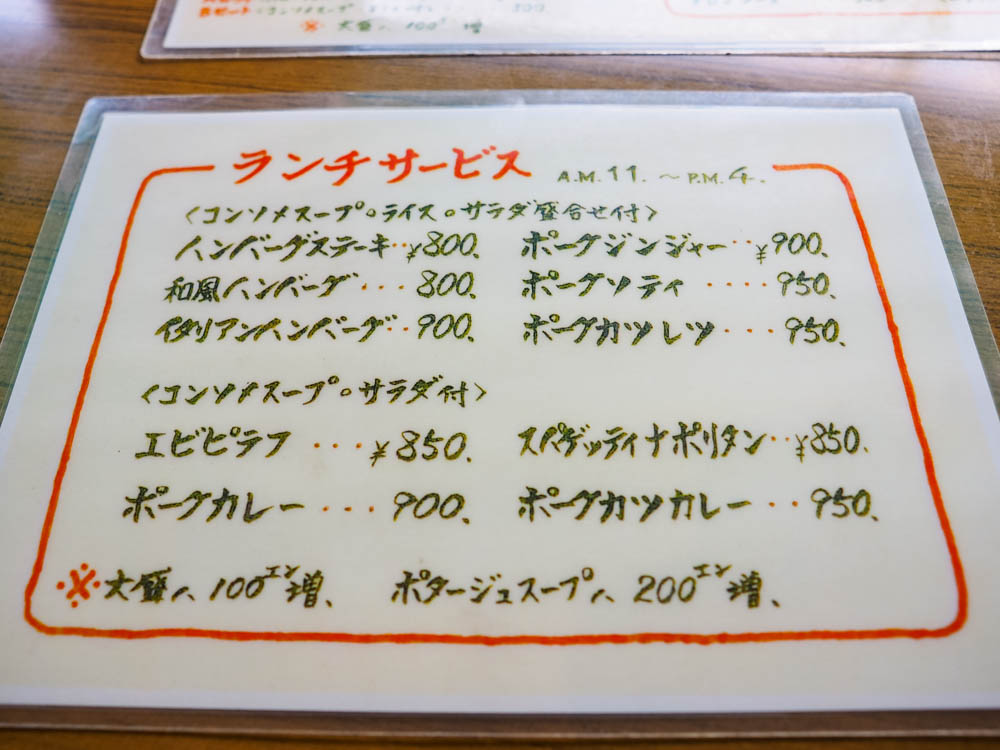 ※ 大盛ハ 100エン増
ランチサービス A.M.11.～P.M.4.
〈コンソメスープ。ライス。サラダ盛合せ付〉
ハンバーグステーキ‥¥800. ポークジンジャー‥¥900.
和風ハンバーグ...800. ポークソティ....950.
イタリアンハンバーグ‥900. ポークカツレツ...950.
〈コンソメスープ。サラダ付〉
エビピラフ...¥850. スパゲッティナポリタン‥¥850.
ポークカレー...900. ポークカツカレー‥950.
※大盛ハ100エン増、 ポタージュスープハ200エン増、